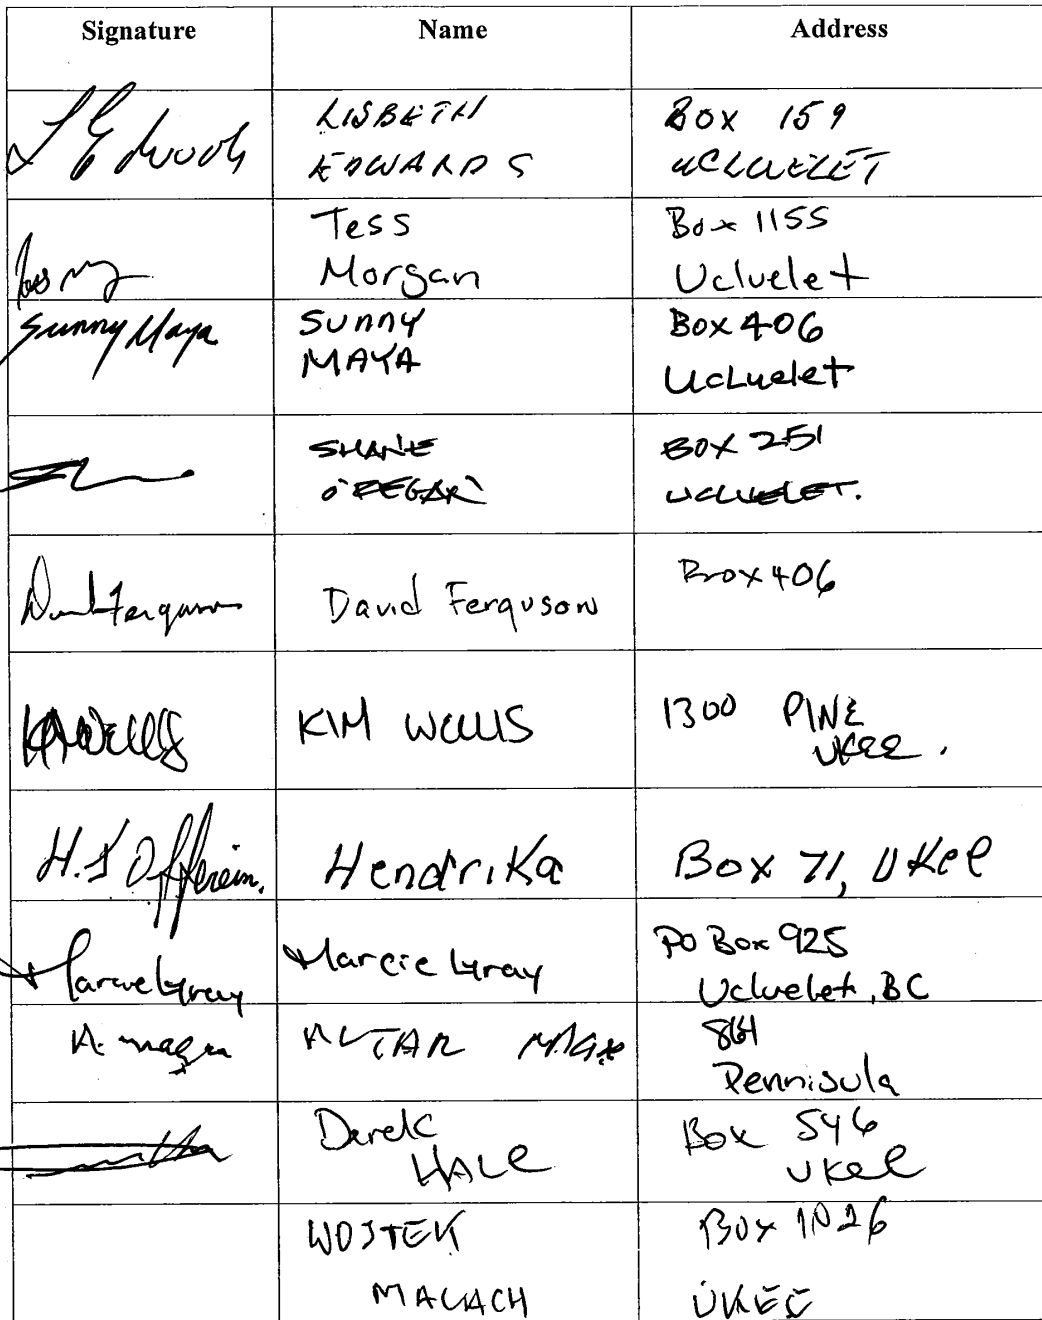 Signature Name Address
L Edwards LISBETH EDWARDS BOX 159
UCLUELET
Tess Morgan Box 1155
Ucluelet
Sunny Maya SUNNY MAYA BOX 406
UCLuelet
SHANE O'REGAN BOX 251
UCLUELET.
David Ferguson David Ferguson Box 406
KIM WELLS 1300 PINE
UKEE.
H.J Offerein. HendriKa Box 71, UKee
Marcie Gray Marcie Gray PO Box 925
Ucluelet, BC
ALTAR
Pennisula
Derek HALE Box 546
UKee
WOJTEK Box 1026
UKEE